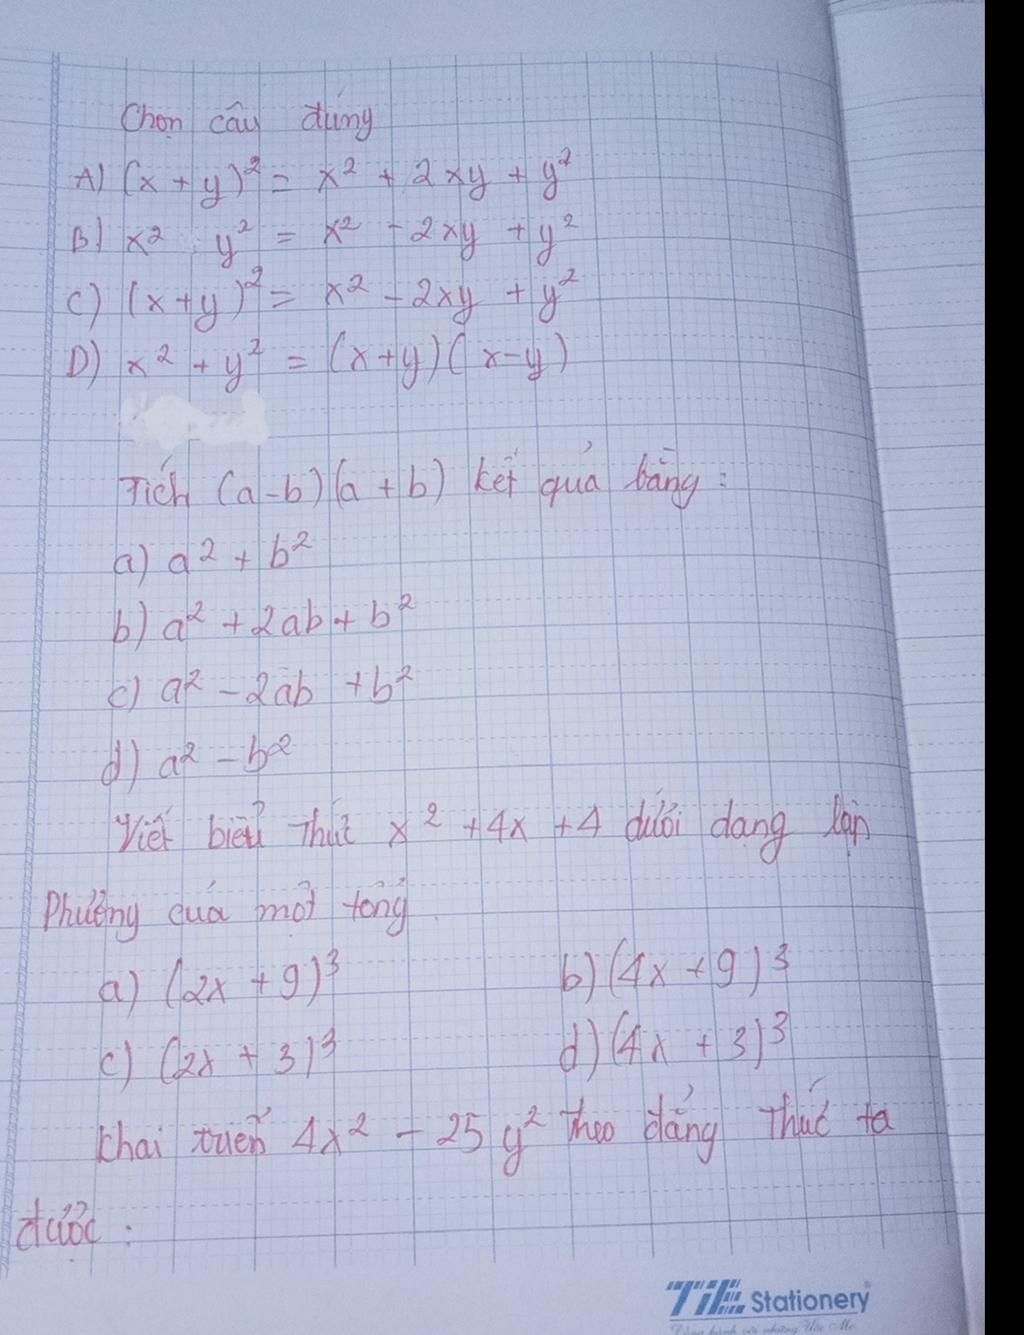 Chọn câu đúng
A) (x + y)² = x² + 2xy + y²
B) x² y² = x² - 2xy + y²
C) (x+y)² = x² - 2xy + y²
D) x² + y² = (x+y)(x-y)
Tích (a-b)(a+b) kết quả bằng:
a) a² + b²
b) a² + 2ab + b²
c) a² - 2ab + b²
d) a² - b²
Viết biểu thức x² + 4x + 4 dưới dạng lập
Phương của một tổng
a) (2x + 9)³ b) (4x + 9)³
c) (2x + 3)³ d) (4x + 3)³
khai triển 4x² - 25y² theo đẳng thức ta
được:
TiE Stationery